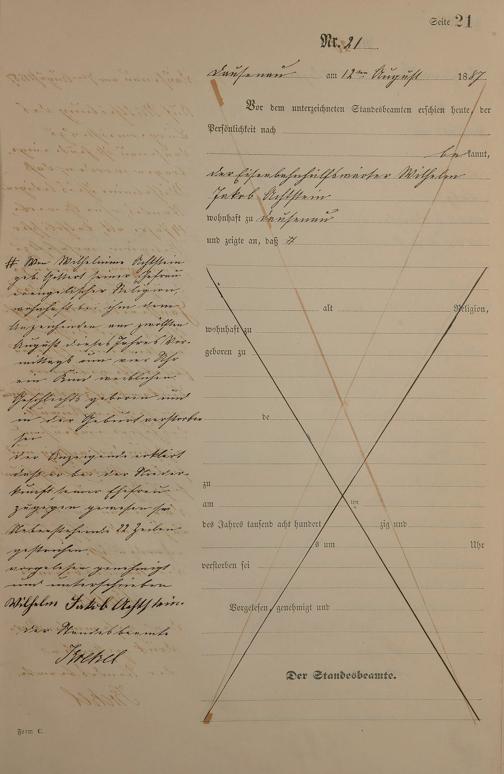 Seite 21
Nr. 21
Dausenau am 12ten August 1887
Vor dem unterzeichneten Standesbeamten erschien heute, der
Persönlichkeit nach
bekannt,
der Eisenbahnhülfswärter Wilhelm
Jakob Achtstein
wohnhaft zu Dausenau
und zeigte an, daß #
# Von Wilhelmine Achtstein
geb. seiner Ehefrau
evangelischer Religion,
wohnhaft bei ihm dem
Anzeigenden am zwölften
August dieses Jahres Vor-
mittags um vier Uhr
ein Kind weiblichen
Geschlechts geboren und
in der Geburt verstorben
sei
Der Anzeigende erklärt
daß er bei der Nieder-
kunft seiner Ehefrau
zugegen gewesen sei
Nebenstehende 22 Zeilen
gestrichen
vorgelesen genehmigt
und unterschrieben
Wilhelm Jakob Achtstein
der Standesbeamte
alt Religion,
wohnhaft zu
geboren zu
de
zu
am ten
des Jahres tausend acht hundert zig und
s um Uhr
verstorben sei
Vorgelesen, genehmigt und
Der Standesbeamte.
Form C.